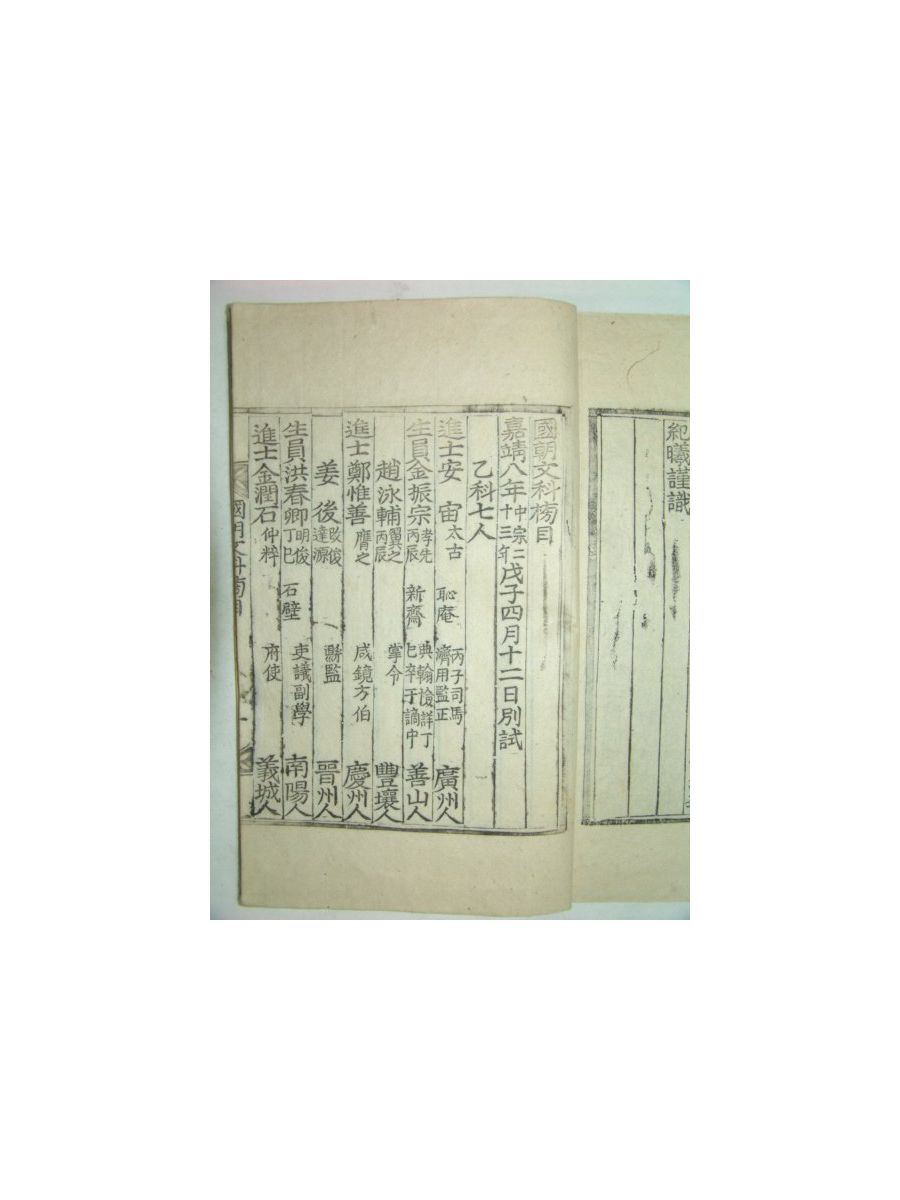 紀曦謹識
國朝文科榜目
嘉靖八年中宗二十三年戊子四月十二日別試
乙科七人
進士安宙太古 恥庵 丙子司馬濟用監正 廣州人
生員金振宗孝先丙辰 新齋 典翰檢詳丁巳辛于謫中 善山人
趙泳輔翼之丙辰 掌令 豐壤人
進士鄭惟善膺之 咸鏡方伯 慶州人
姜後改俊達源 縣監 晉州人
生員洪春卿明俊丁巳 石壁 吏議副學 南陽人
進士金潤石仲粹 府使 義城人
國朝文科榜目